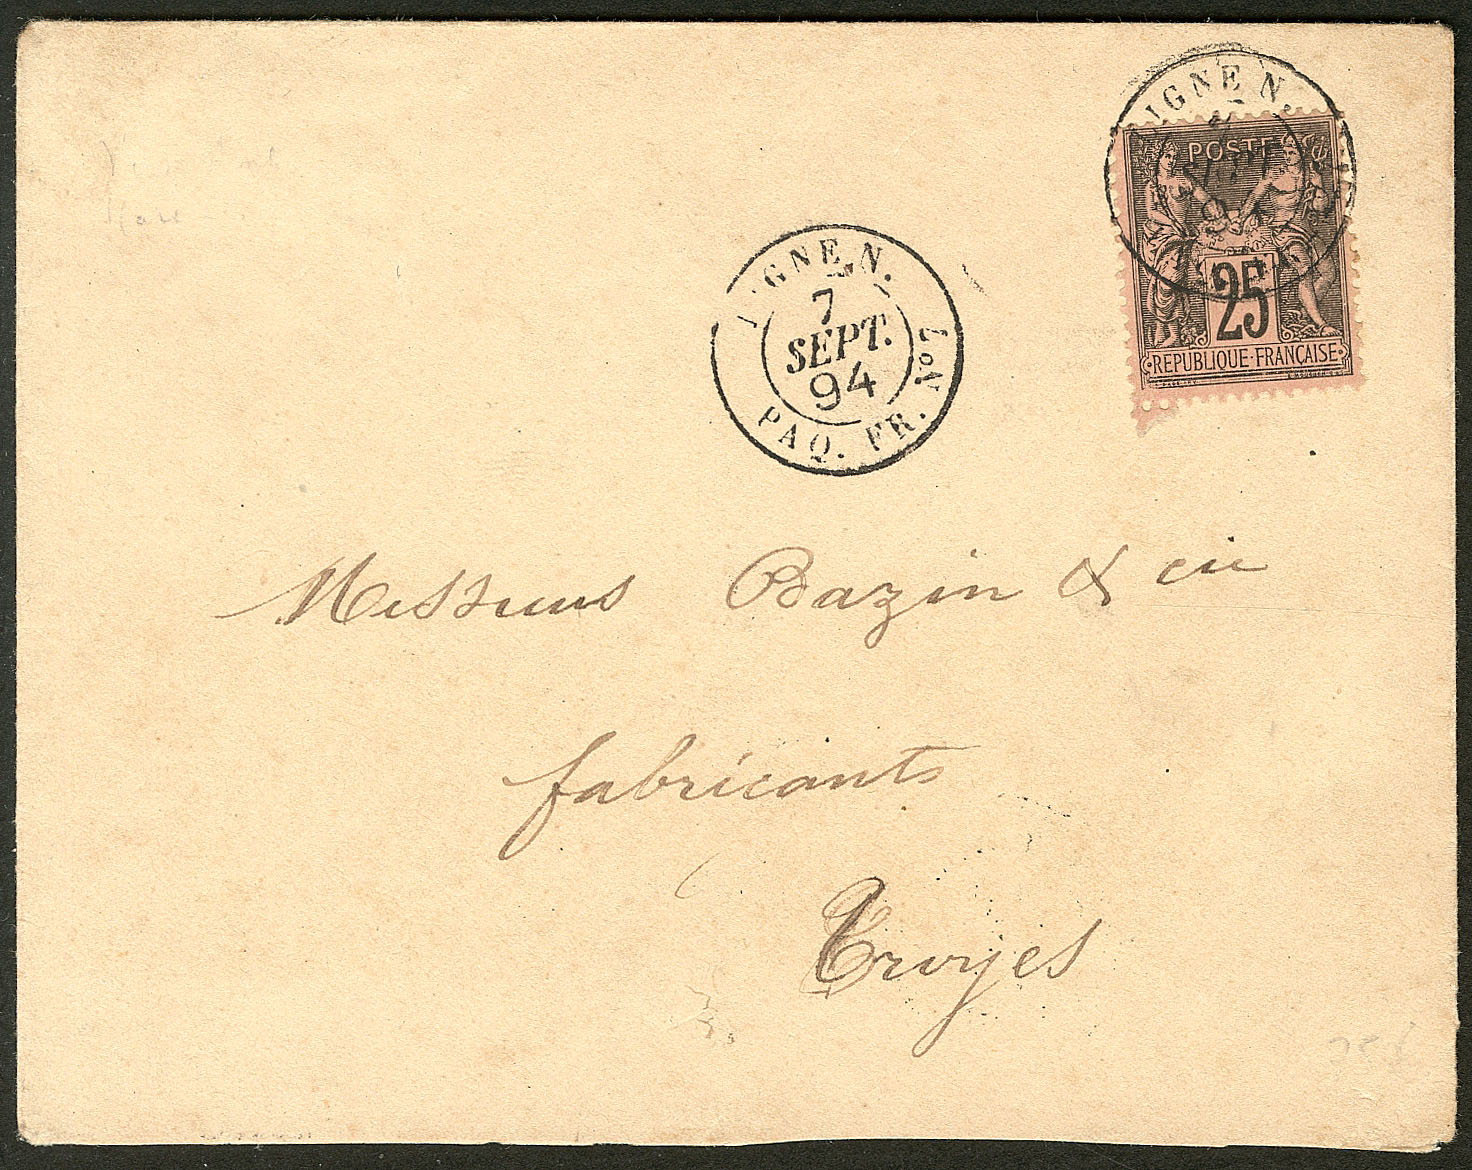 LIGNE N.
POSTE
25
REPUBLIQUE FRANÇAISE
LIGNE N.
7
SEPT.
94
PAQ. FR. No 7
Messieurs Bazin & cie
fabricants
Troyes